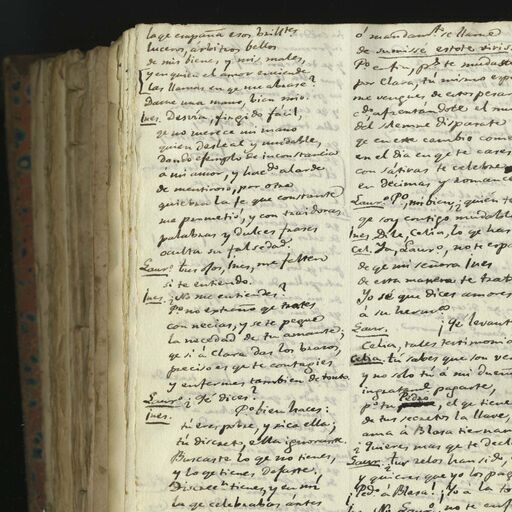 la qe empaña esos brilltes
luceros, arbitros bellos
de mis bienes, y mis males,
y en quien el amor enciende
las llamas en qe me abrase?
Dame una mano, bien mio.
Ines. Desvia, fingido facil,
qe no merece mi mano
quien desleal y mudable,
dando exemplo de inconstancia
á mi amor, y haciendo alarde
de mentiroso, por otra
quiebra la fe que constante
me prometió, y con traidoras
palabras y dulces frases
oculta su falsedad.
Laur. tus ojos, Ines, me falten
si te entiendo.
Ines. ¿No me entiendes?
Po no estraño qe trates
con necias, y se te pegue
la necedad de tu amante;
qe si á Clara das los brazos,
preciso es qe te contagies
y enfermes tambien de tonto.
Lauro ¿Qe dices?
Ines. Po bien haces:
tú eres pobre, y rica ella;
tú discreto, ella ignorante.
Buscaste lo qe no tienes,
y lo qe tienes dejaste.
Discrecn tienes, y en mí
la qe celebrabas ántes
ó mandam
se llama
de
Po en fin, ps te mudaste
por Clara, tú mismo
me vengues de estos
afrentándole el
del
disparate
qe en este cambio
en el dia en qe te cases
con sátiras te celebre
en decimas y romance
Lauro Po, mi bien, ¿quien te
qe soy contigo mudable
Ines. Dile, Celia, lo qe has
Cel. Yo, Lauro, no te
de qe mi señora Ines
de esta manera te trat
Yo sé que dices amores
á su herma
Lauro. ¡Qe levant
Celia, tales testimonio
Celia. tú sabes que son ver
y no solo tú á mi dueñ
ingratamte pagarte,
Pedro, el qe tiene
de tus secretos la llave,
ama á Blasa tiernam
¿Quieres mas qe te decl
Lauro. tus zelos han sido
y quieres que yo los pag
¡Pedo á Blasa! ¡Yo á la to